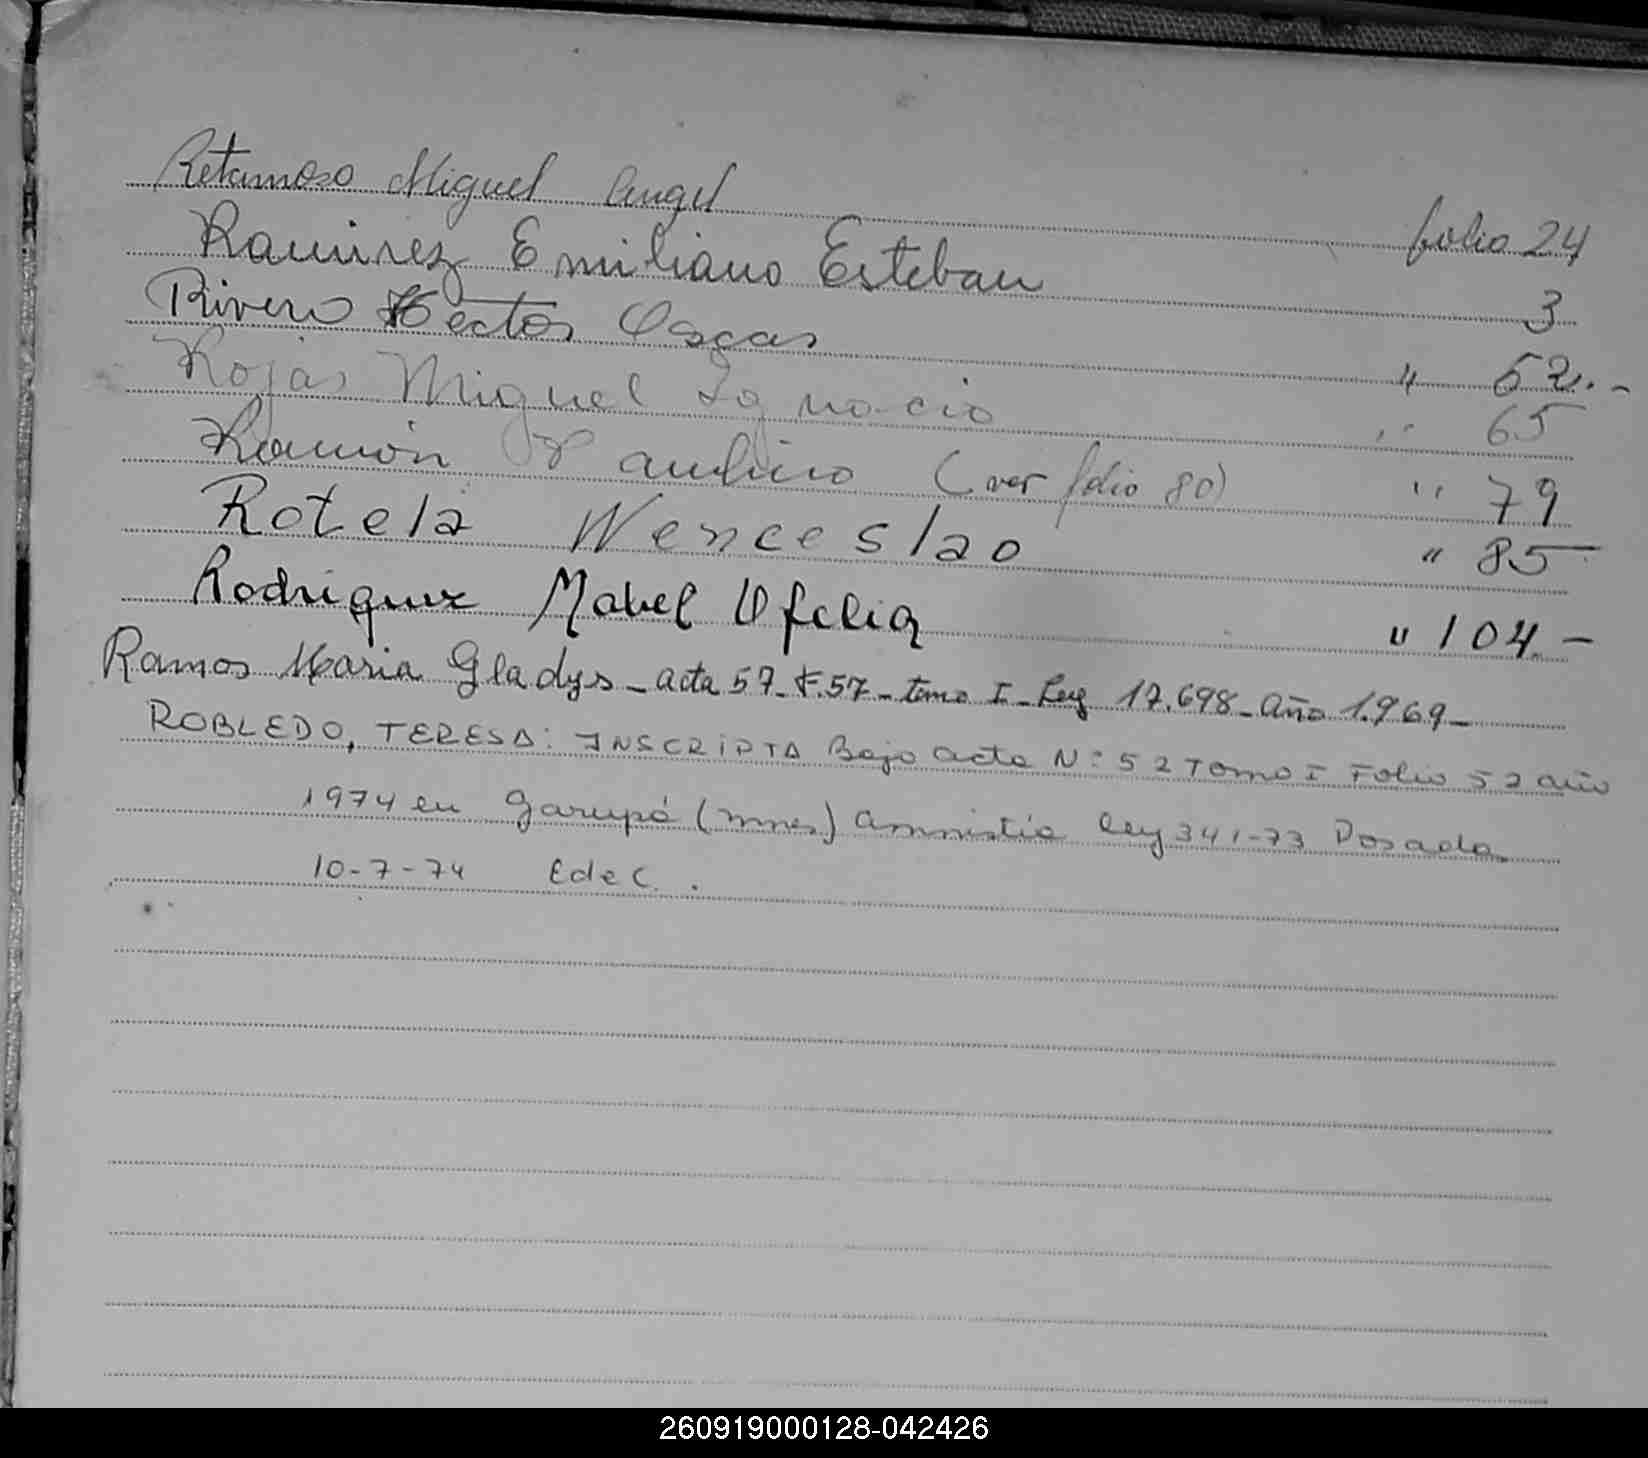 Retamoso Miguel Angel folio 24
Ramirez Emiliano Esteban 3
Rivero Hector Oscar " 52.-
Rojas Miguel Ignacio " 65
Ramón Paulino (ver folio 80) " 79
Rotela Wenceslao " 85
Rodriguez Mabel Ofelia " 104-
Ramos Maria Gladys - acta 57 - F. 57 - tomo I - Ley 17.698 - Año 1.969 -
ROBLEDO, TERESA: INSCRIPTA Bajo acta N: 52 Tomo I Folio 52 año
1974 en Garupá (mnes) amnistia ley 341-73 Posadas
10-7-74 EdeC.
260919000128-042426